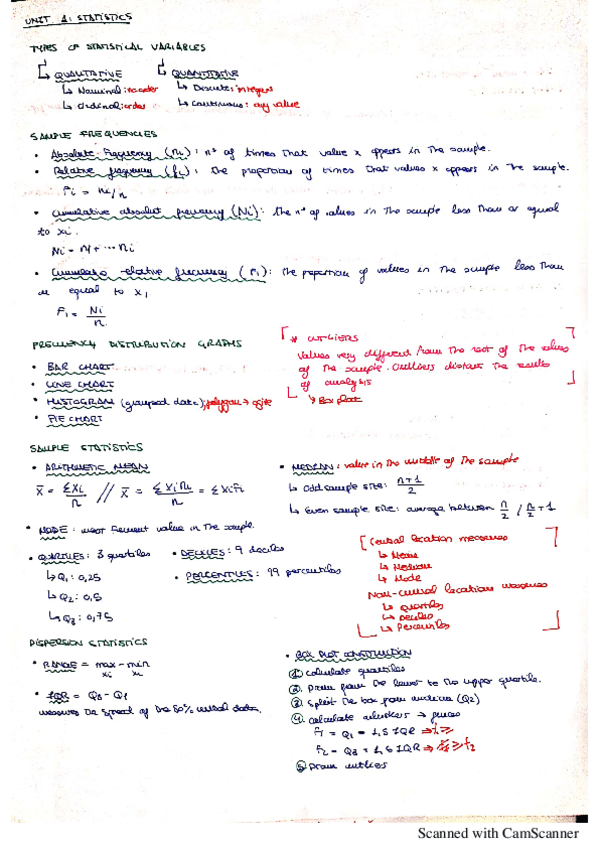 UNIT 1: STATISTICS
TYPES OF STATISTICAL VARIABLES
↳ QUALITATIVE
↳ Nominal: no order
↳ Ordinal: order
↳ QUANTITATIVE
↳ Discrete: integers
↳ Continuous: any value
SAMPLE FREQUENCIES
• Absolute frequency (ni): nº of times that value x appears in the sample.
• Relative frequency (fi): the proportion of times that values x appears in the sample.
fi = ni/n
• Cumulative absolute frequency (Ni): the nº of values in the sample less than or equal
to xi.
Ni = n1 + ... ni
• Cumulative relative frequency (Fi): the proportion of values in the sample less than
or equal to xi
Fi = Ni/n
FREQUENCY DISTRIBUTION GRAPHS
• BAR CHART
• LINE CHART
• HISTOGRAM (grouped data), polygon → ogive
• PIE CHART
* OUTLIERS
Values very different from the rest of the values
of the sample. Outliers distort the results
of analysis
↳ Box plot
SAMPLE STATISTICS
• ARITHMETIC MEAN
x̄ = Σxi/n // x̄ = Σxi ni/n = Σxi fi
• MODE: most frequent value in the sample.
• QUARTILES: 3 quartiles
↳ Q1: 0,25
↳ Q2: 0,5
↳ Q3: 0,75
• DECILES: 9 deciles
• PERCENTILES: 99 percentiles
• MEDIAN: value in the middle of the sample
↳ Odd sample size: n+1/2
↳ Even sample size: average between n/2 / n/2 + 1
Central location measures
↳ Mean
↳ Median
↳ Mode
Non-central location measures
↳ quartiles
↳ Deciles
↳ Percentiles
DISPERSION STATISTICS
• RANGE = max xi - min xi
• IQR = Q3 - Q1
measures the spread of the 50% central data.
• BOX PLOT CONSTRUCTION
① calculate quartiles
② Draw from the lower to the upper quartile.
③ Split the box from median (Q2)
④ calculate whiskers → fences
f1 = Q1 - 1,5 IQR
f2 = Q3 + 1,5 IQR
⑤ Draw outliers
Scanned with CamScanner